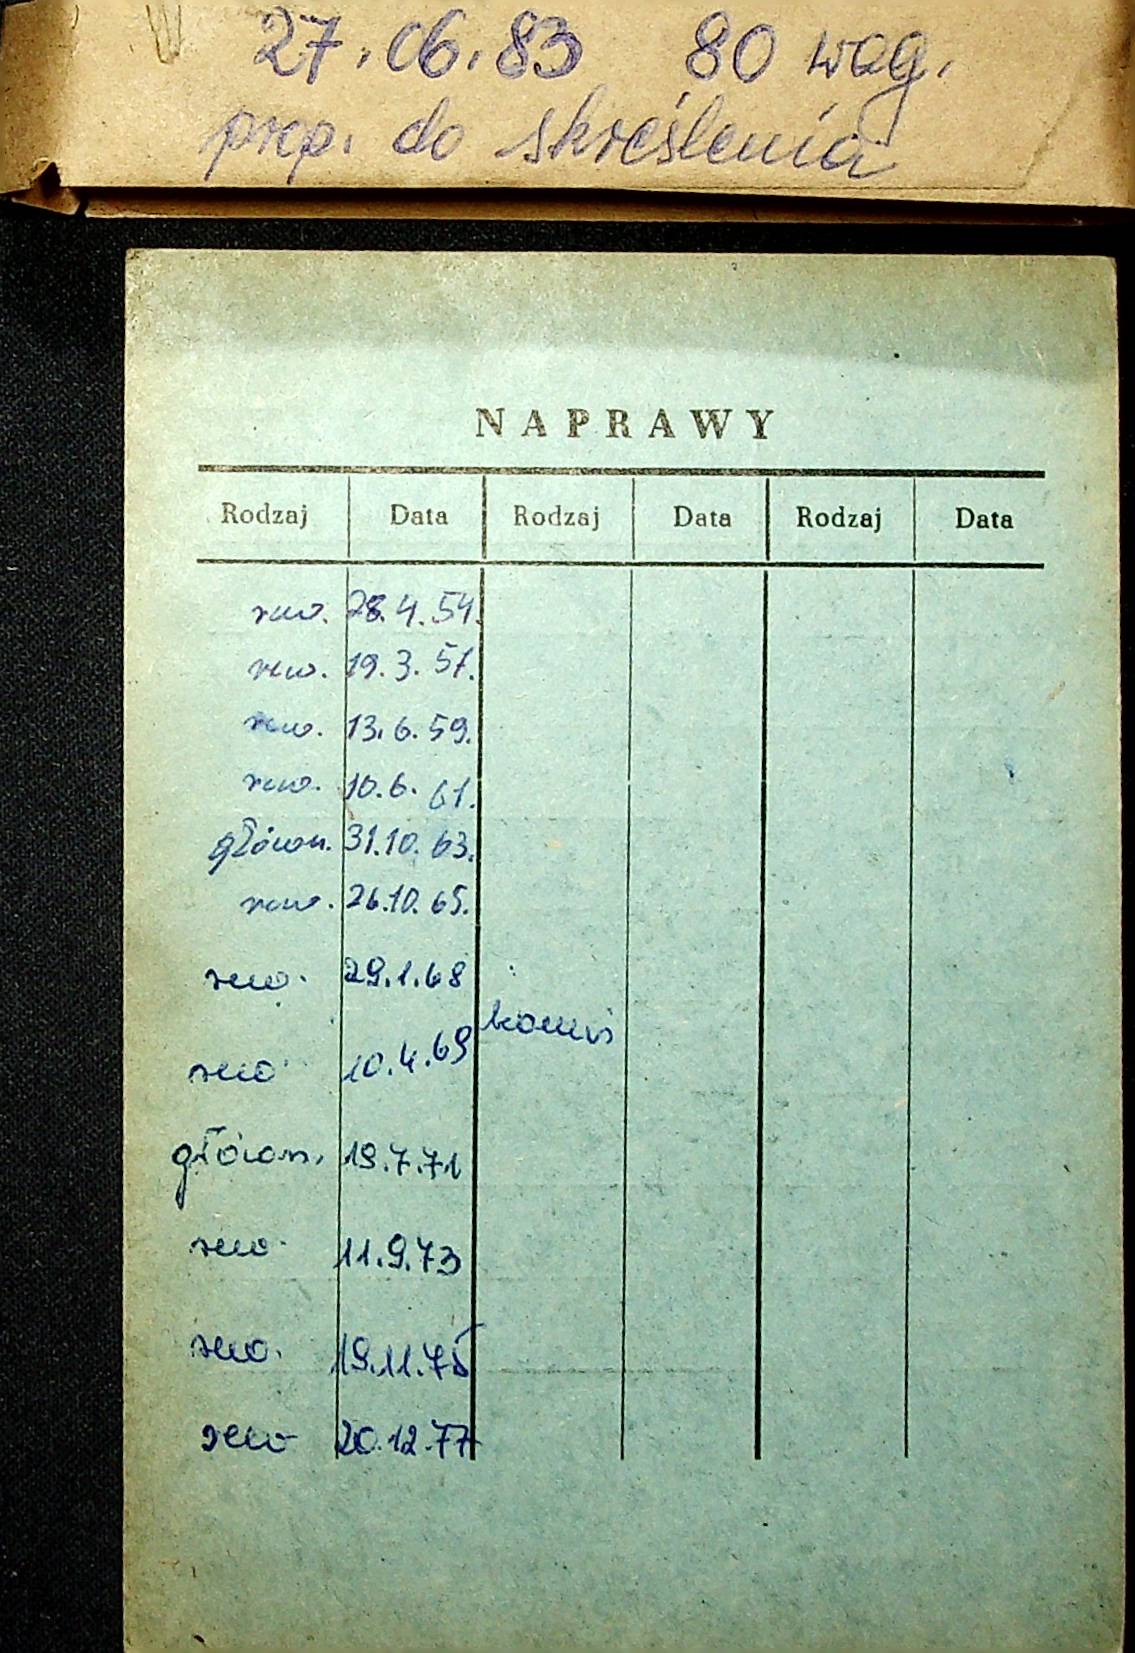 27.06.83 80 wag.
prop. do skreślenia
NAPRAWY
Rodzaj Data Rodzaj Data Rodzaj Data
rew. 28.4.54.
rew. 19.3.57.
rew. 13.6.59.
rew. 10.6.61.
główn. 31.10.63.
rew. 26.10.65.
rew. 29.1.68
rew. 10.4.69
główn. 19.7.71
rew. 11.9.73
rew. 19.11.75
rew 20.12.77